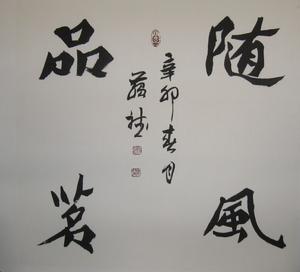 随風
品茗
辛卯春月